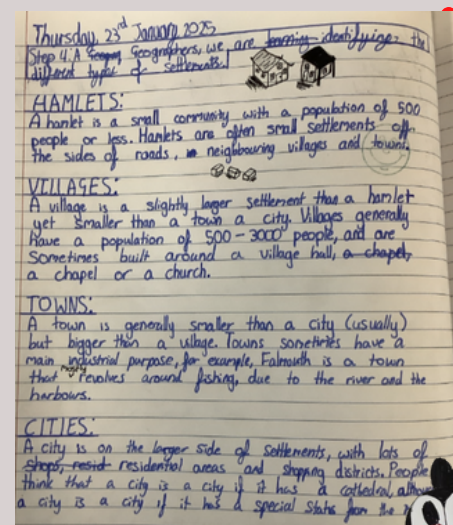 Thursday, 23rd January 2025
Step 4: A Geographers, we are learning identifying the
different types of settlements
HAMLETS:
A hamlet is a small community with a population of 500
people or less. Hamlets are often small settlements off
the sides of roads, neighbouring villages and towns.
VILLAGES:
A village is a slightly larger settlement than a hamlet
yet smaller than a town a city. Villages generally
have a population of 500-3000 people, and are
sometimes built around a village hall, a chapel,
a chapel or a church.
TOWNS:
A town is generally smaller than a city (usually)
but bigger than a village. Towns sometimes have a
main industrial purpose, for example, Falmouth is a town
that mostly revolves around fishing, due to the river and the
harbours.
CITIES:
A city is on the larger side of settlements, with lots of
shops, resid residential areas and shopping districts. People
think that a city is a city if it has a cathedral, although
a city is a city if it has a special status from the